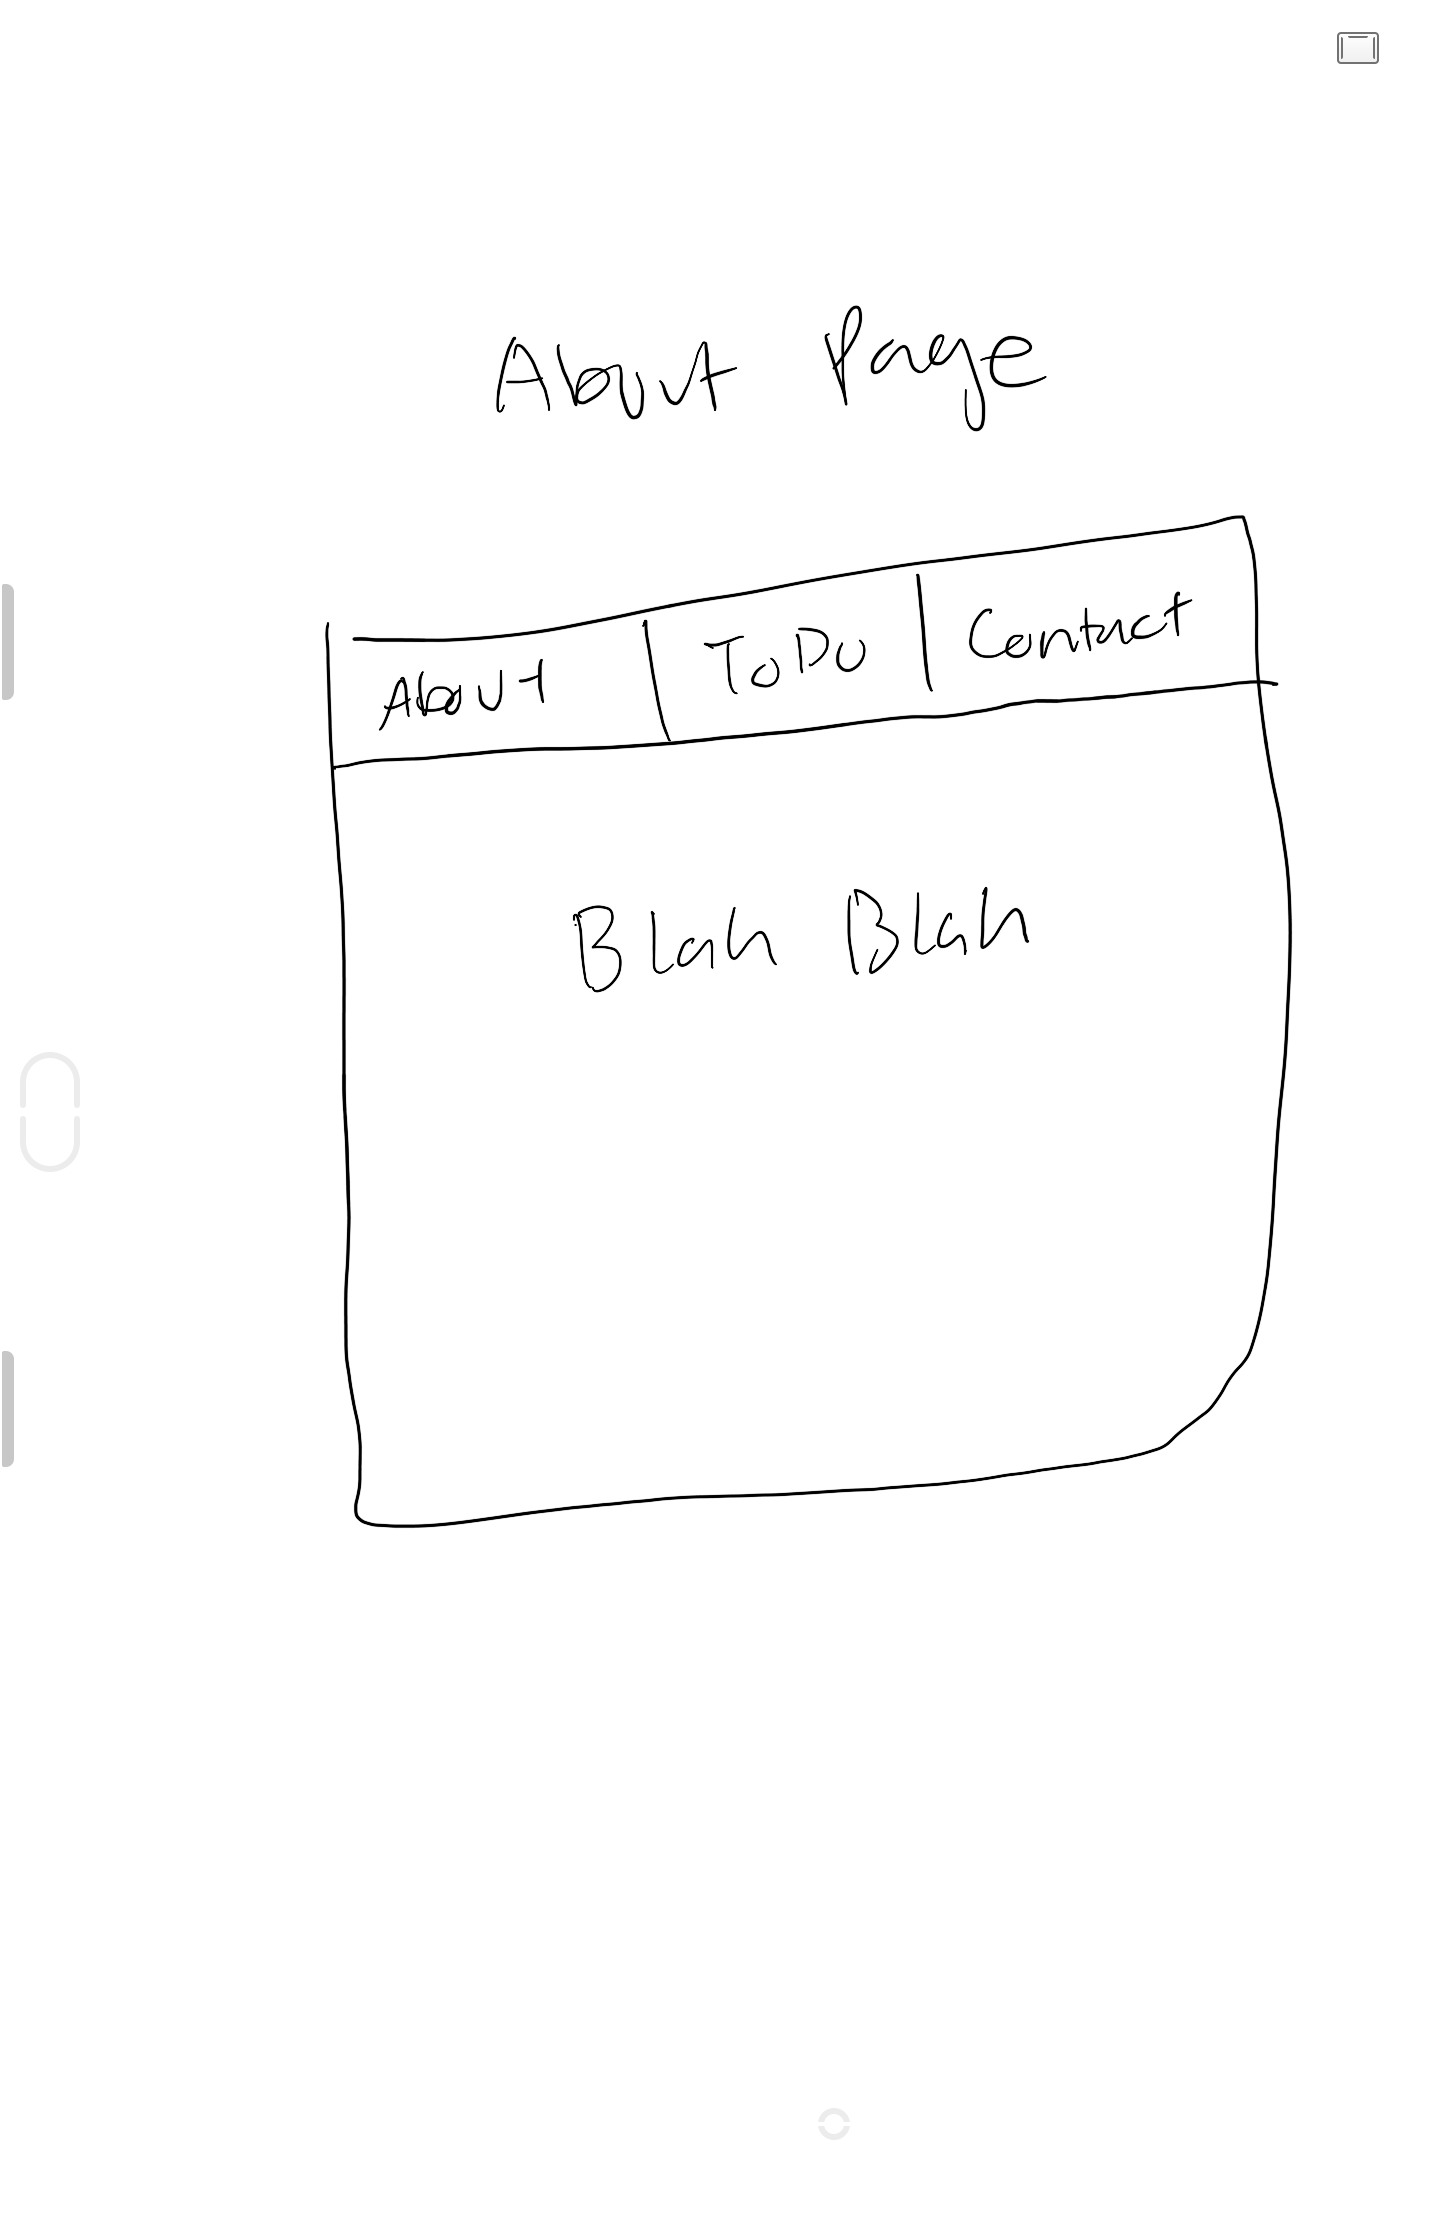 About Page
About ToDo Contact
Blah Blah